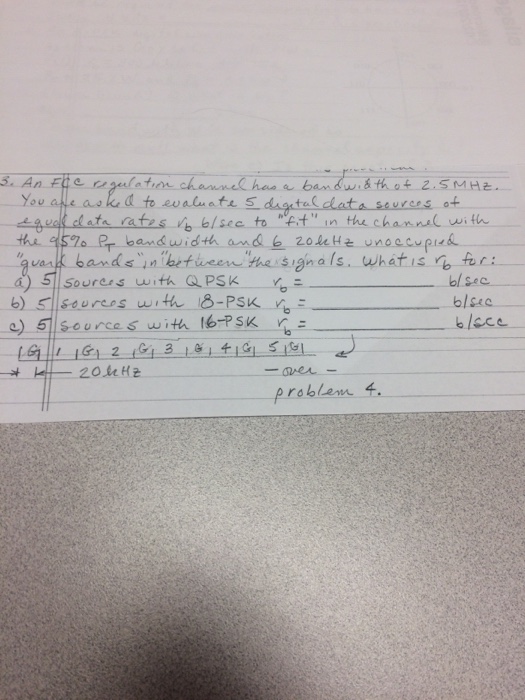 3. An FCC regulation channel has a bandwidth of 2.5MHz.
You are asked to evaluate 5 digital data sources of
equal data rates rb b/sec to "fit" in the channel with
the 95% PT bandwidth and 6 20kHz unoccupied
"guard bands" in "between" the signals. What is rb for:
a) 5 sources with QPSK rb = b/sec
b) 5 sources with 8-PSK rb = b/sec
c) 5 sources with 16-PSK rb = b/sec
|G| 1 |G| 2 |G| 3 |G| 4 |G| 5 |G|
* 20kHz - over -
problem 4.